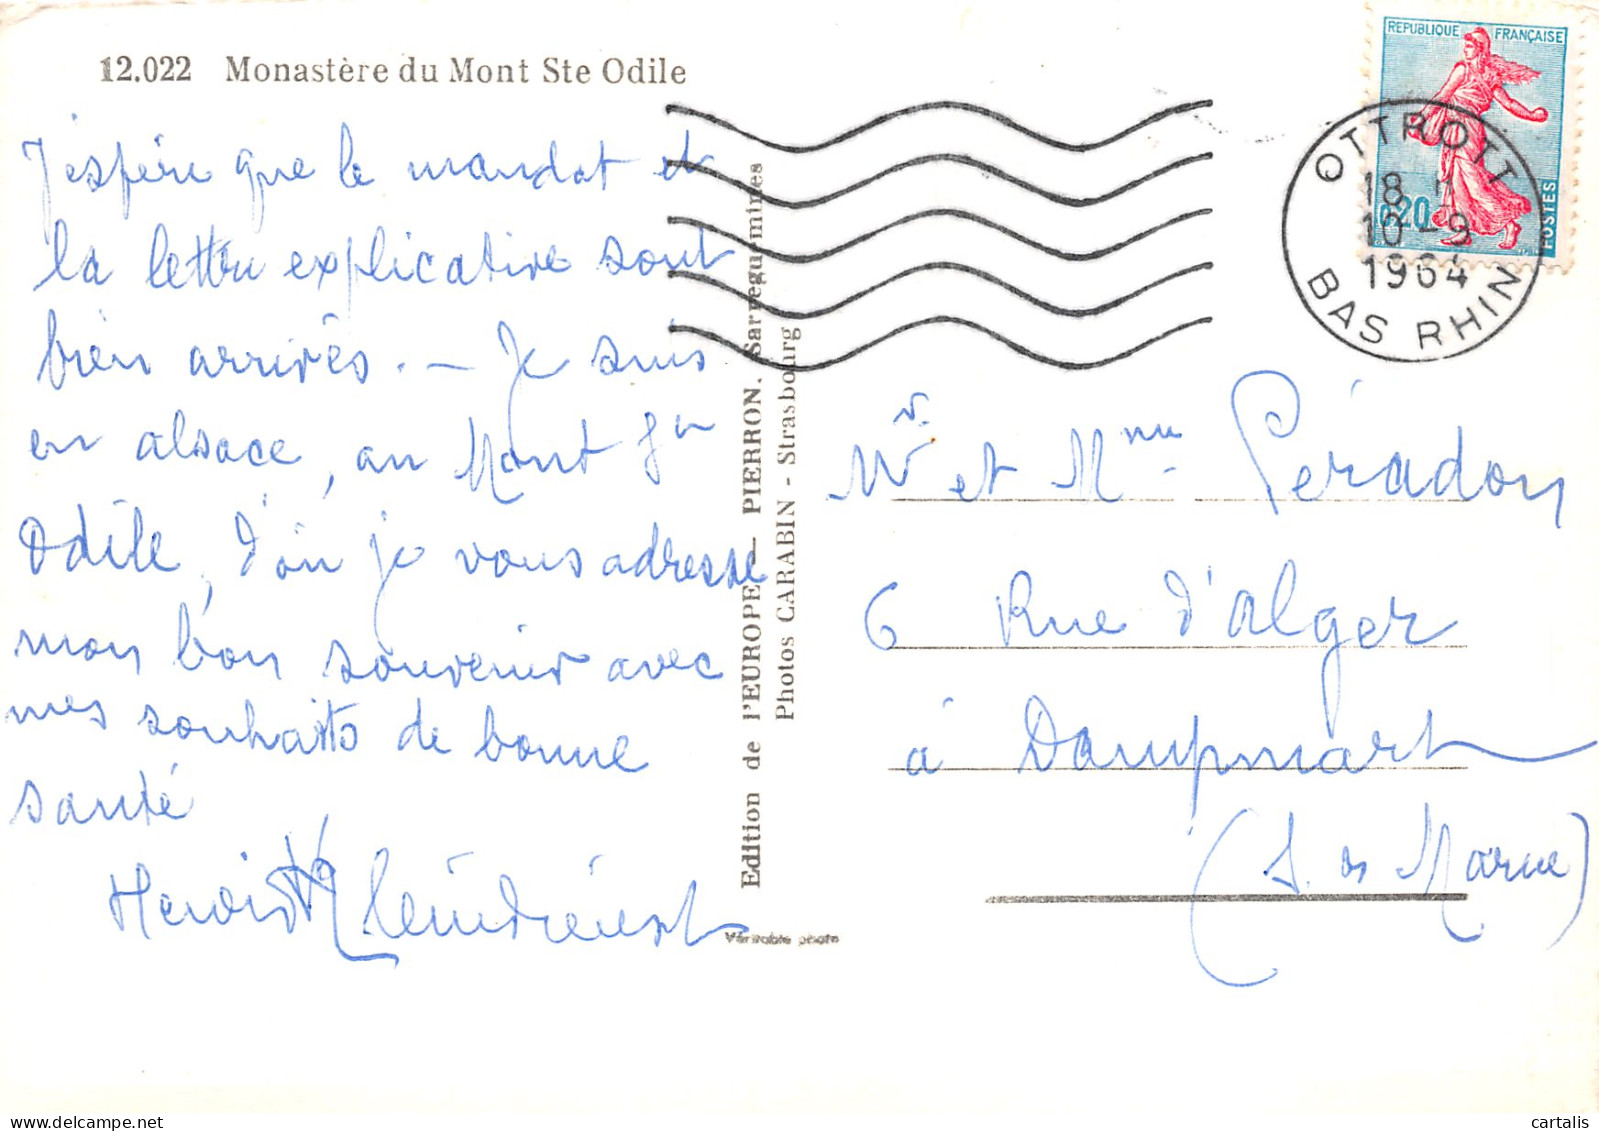 12.022 Monastère du Mont Ste Odile
J'espère que le mandat et
la lettre explicative sont
bien arrivés. — Je suis
en alsace, au Mont Ste
Odile, d'où je vous adresse
mon bon souvenir avec
mes souhaits de bonne
santé
Edition de l'EUROPE — PIERRON. Sarreguemines
Photos CARABIN - Strasbourg
Véritable photo
REPUBLIQUE FRANÇAISE
0,20
POSTES
OTTROTT
18 H
10 - 9
1964
BAS RHIN
Mr et Mme Péradon
6 Rue d'alger
à Dampmart
(S. et Marne)
delcampe.net
cartalis